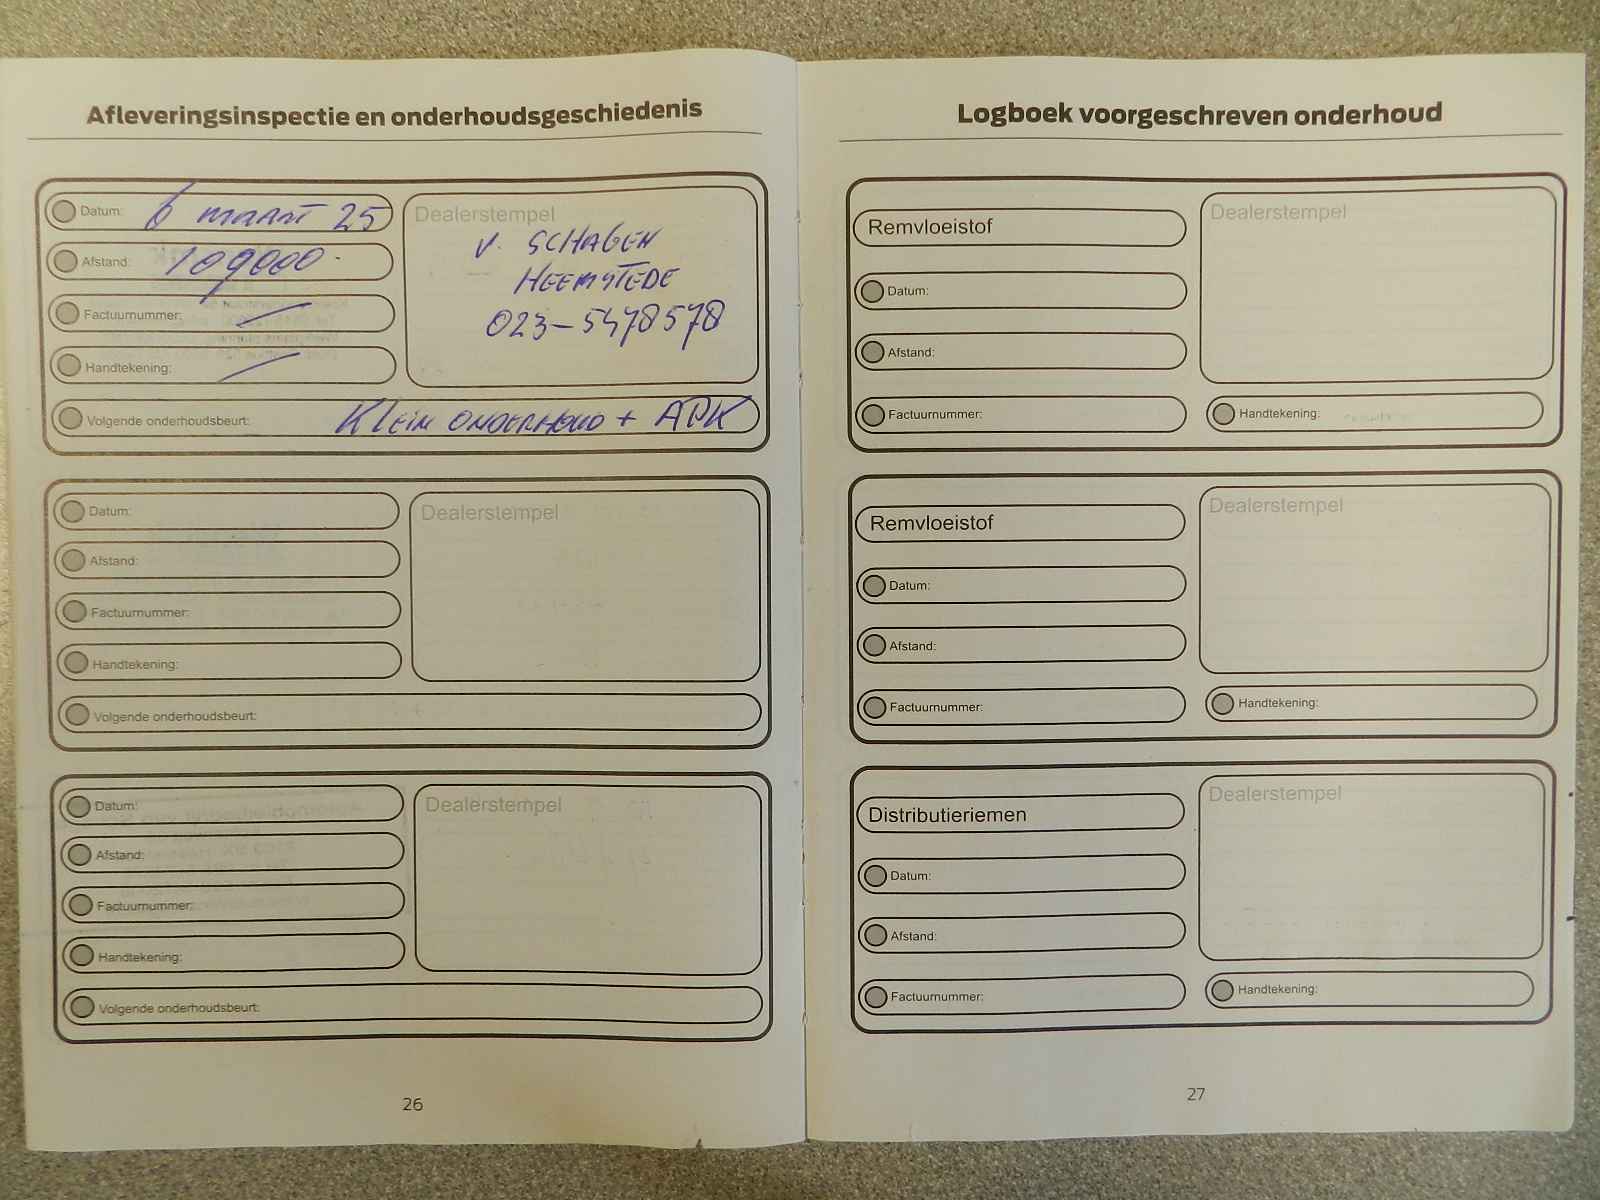 Afleveringsinspectie en onderhoudsgeschiedenis
Datum: 6 maart 25
Afstand: 109000
Factuurnummer:
Handtekening:
Dealerstempel
V. SCHAGEN
HEEMSTEDE
023-5478578
Volgende onderhoudsbeurt: Klein onderhoud + APK
Datum:
Afstand:
Factuurnummer:
Handtekening:
Dealerstempel
Volgende onderhoudsbeurt:
Datum:
Afstand:
Factuurnummer:
Handtekening:
Dealerstempel
Volgende onderhoudsbeurt:
26
Logboek voorgeschreven onderhoud
Remvloeistof
Datum:
Afstand:
Factuurnummer:
Dealerstempel
Handtekening:
Remvloeistof
Datum:
Afstand:
Factuurnummer:
Dealerstempel
Handtekening:
Distributieriemen
Datum:
Afstand:
Factuurnummer:
Dealerstempel
Handtekening:
27